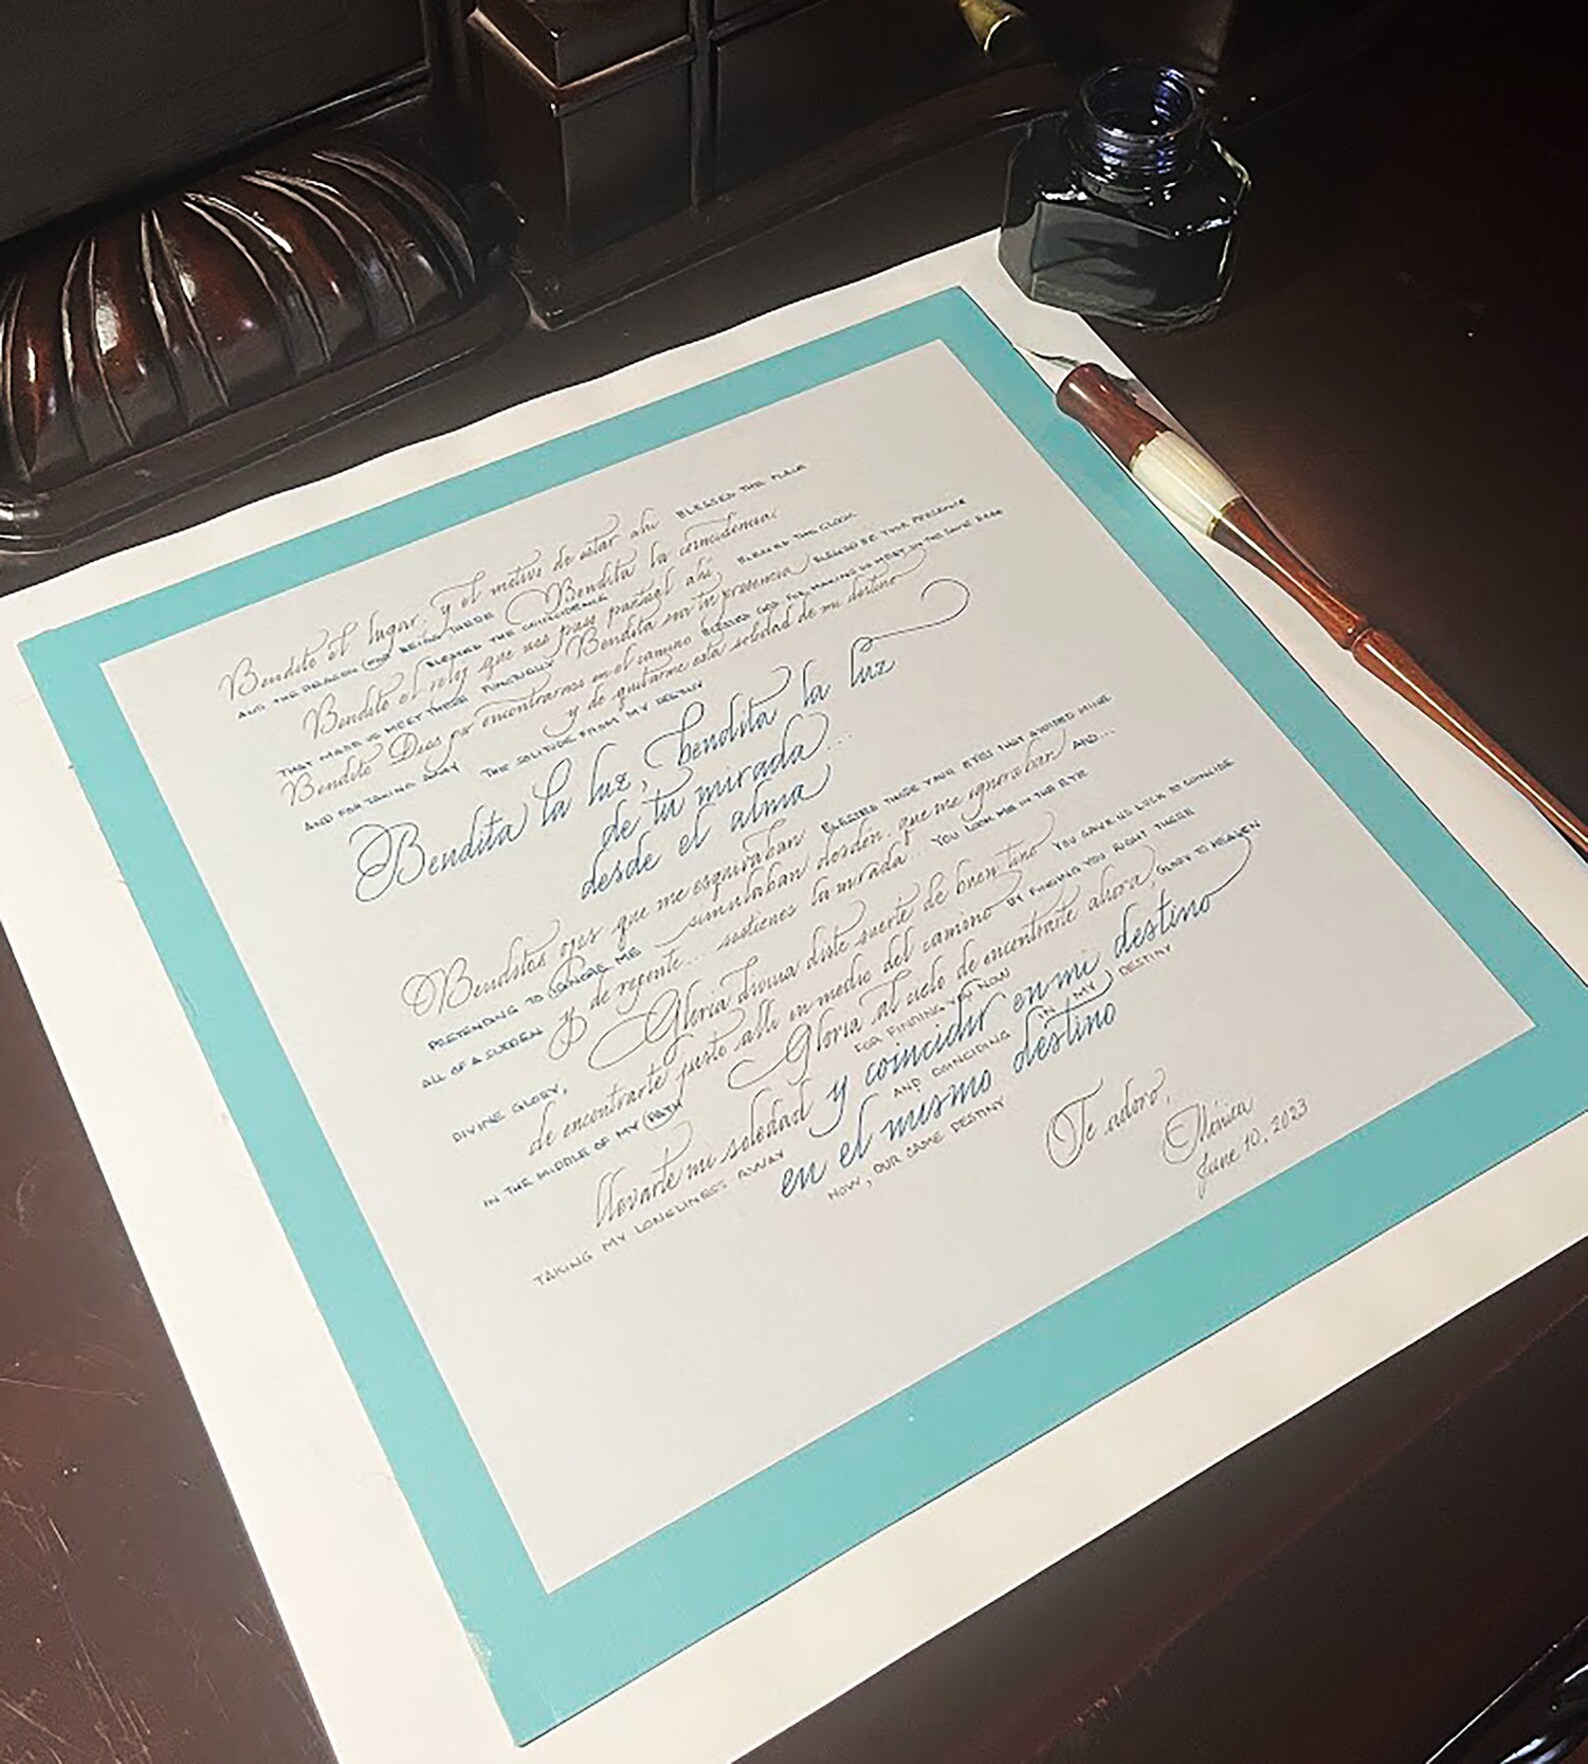 Bendito el lugar, y el motivo de estar ahí BLESSED THE PLACE
AND THE REASON FOR BEING THERE Bendita la coincidencia.
BLESSED THE COINCIDENCE
Bendito el reloj que nos puso puntual ahí BLESSED THE CLOCK
THAT MADE US MEET THERE PUNCTUALLY Bendita sea tu presencia BLESSED BE YOUR PRESENCE
Bendito Dios por encontrarnos en el camino BLESSED GOD FOR MAKING US MEET IN THE SAME ROAD
y de quitarme esta soledad de mi destino
AND FOR TAKING AWAY THE SOLITUDE FROM MY DESTINY
Bendita la luz, bendita la luz
de tu mirada...
desde el alma
Benditos ojos que me esquivaban BLESSED THOSE YOUR EYES THAT AVOIDED MINE
simulaban desdén que me ignoraban AND...
PRETENDING TO IGNORE ME
y de repente... sostienes la mirada... YOU LOOK ME IN THE EYE
ALL OF A SUDDEN
Gloria divina diste suerte de buen tino YOU GAVE US LUCK TO COINCIDE
DIVINE GLORY,
de encontrarte justo allí en medio del camino BY FINDING YOU RIGHT THERE
IN THE MIDDLE OF MY PATH
Gloria al cielo de encontrarte ahora, GLORY TO HEAVEN
FOR FINDING YOU NOW
llevarte mi soledad y coincidir en mi destino
TAKING MY LONELINESS AWAY AND COINCIDING IN MY DESTINY
en el mismo destino
NOW, OUR SAME DESTINY
Te adoro,
Mónica
June 10, 2023